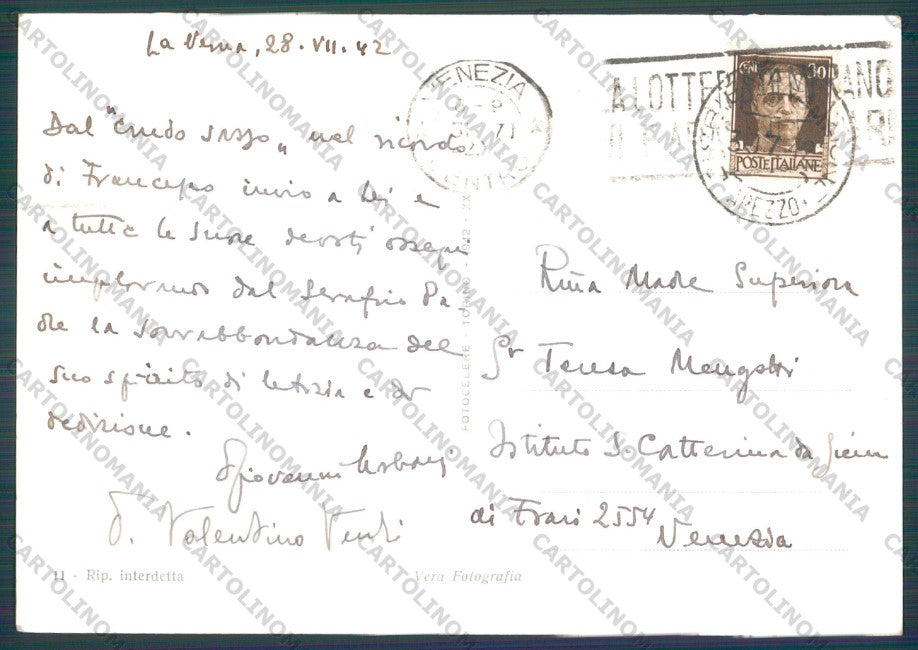 La Verna, 28·VII·42
Dal "crudo sasso" nel ricordo
di Francesco invio a Lei e
a tutte le Suore devoti ossequi
implorando dal Serafico Pa
dre la sovrabbondanza del
suo spirito di letizia e di
dedizione.
Giovanni Urbani
D. Valentino Vendi
11 - Rip. interdetta
Vera Fotografia
FOTOCELERE - TORINO - 1942 - XX
VENEZIA
CENTRO
CENT 30
POSTE ITALIANE
AREZZO
LA LOTTERIA
Rma Madre Superiora
Sr Teresa
Istituto S. Catterina da Siena
ai Frari 2554
Venezia
CARTOLINOMANIA